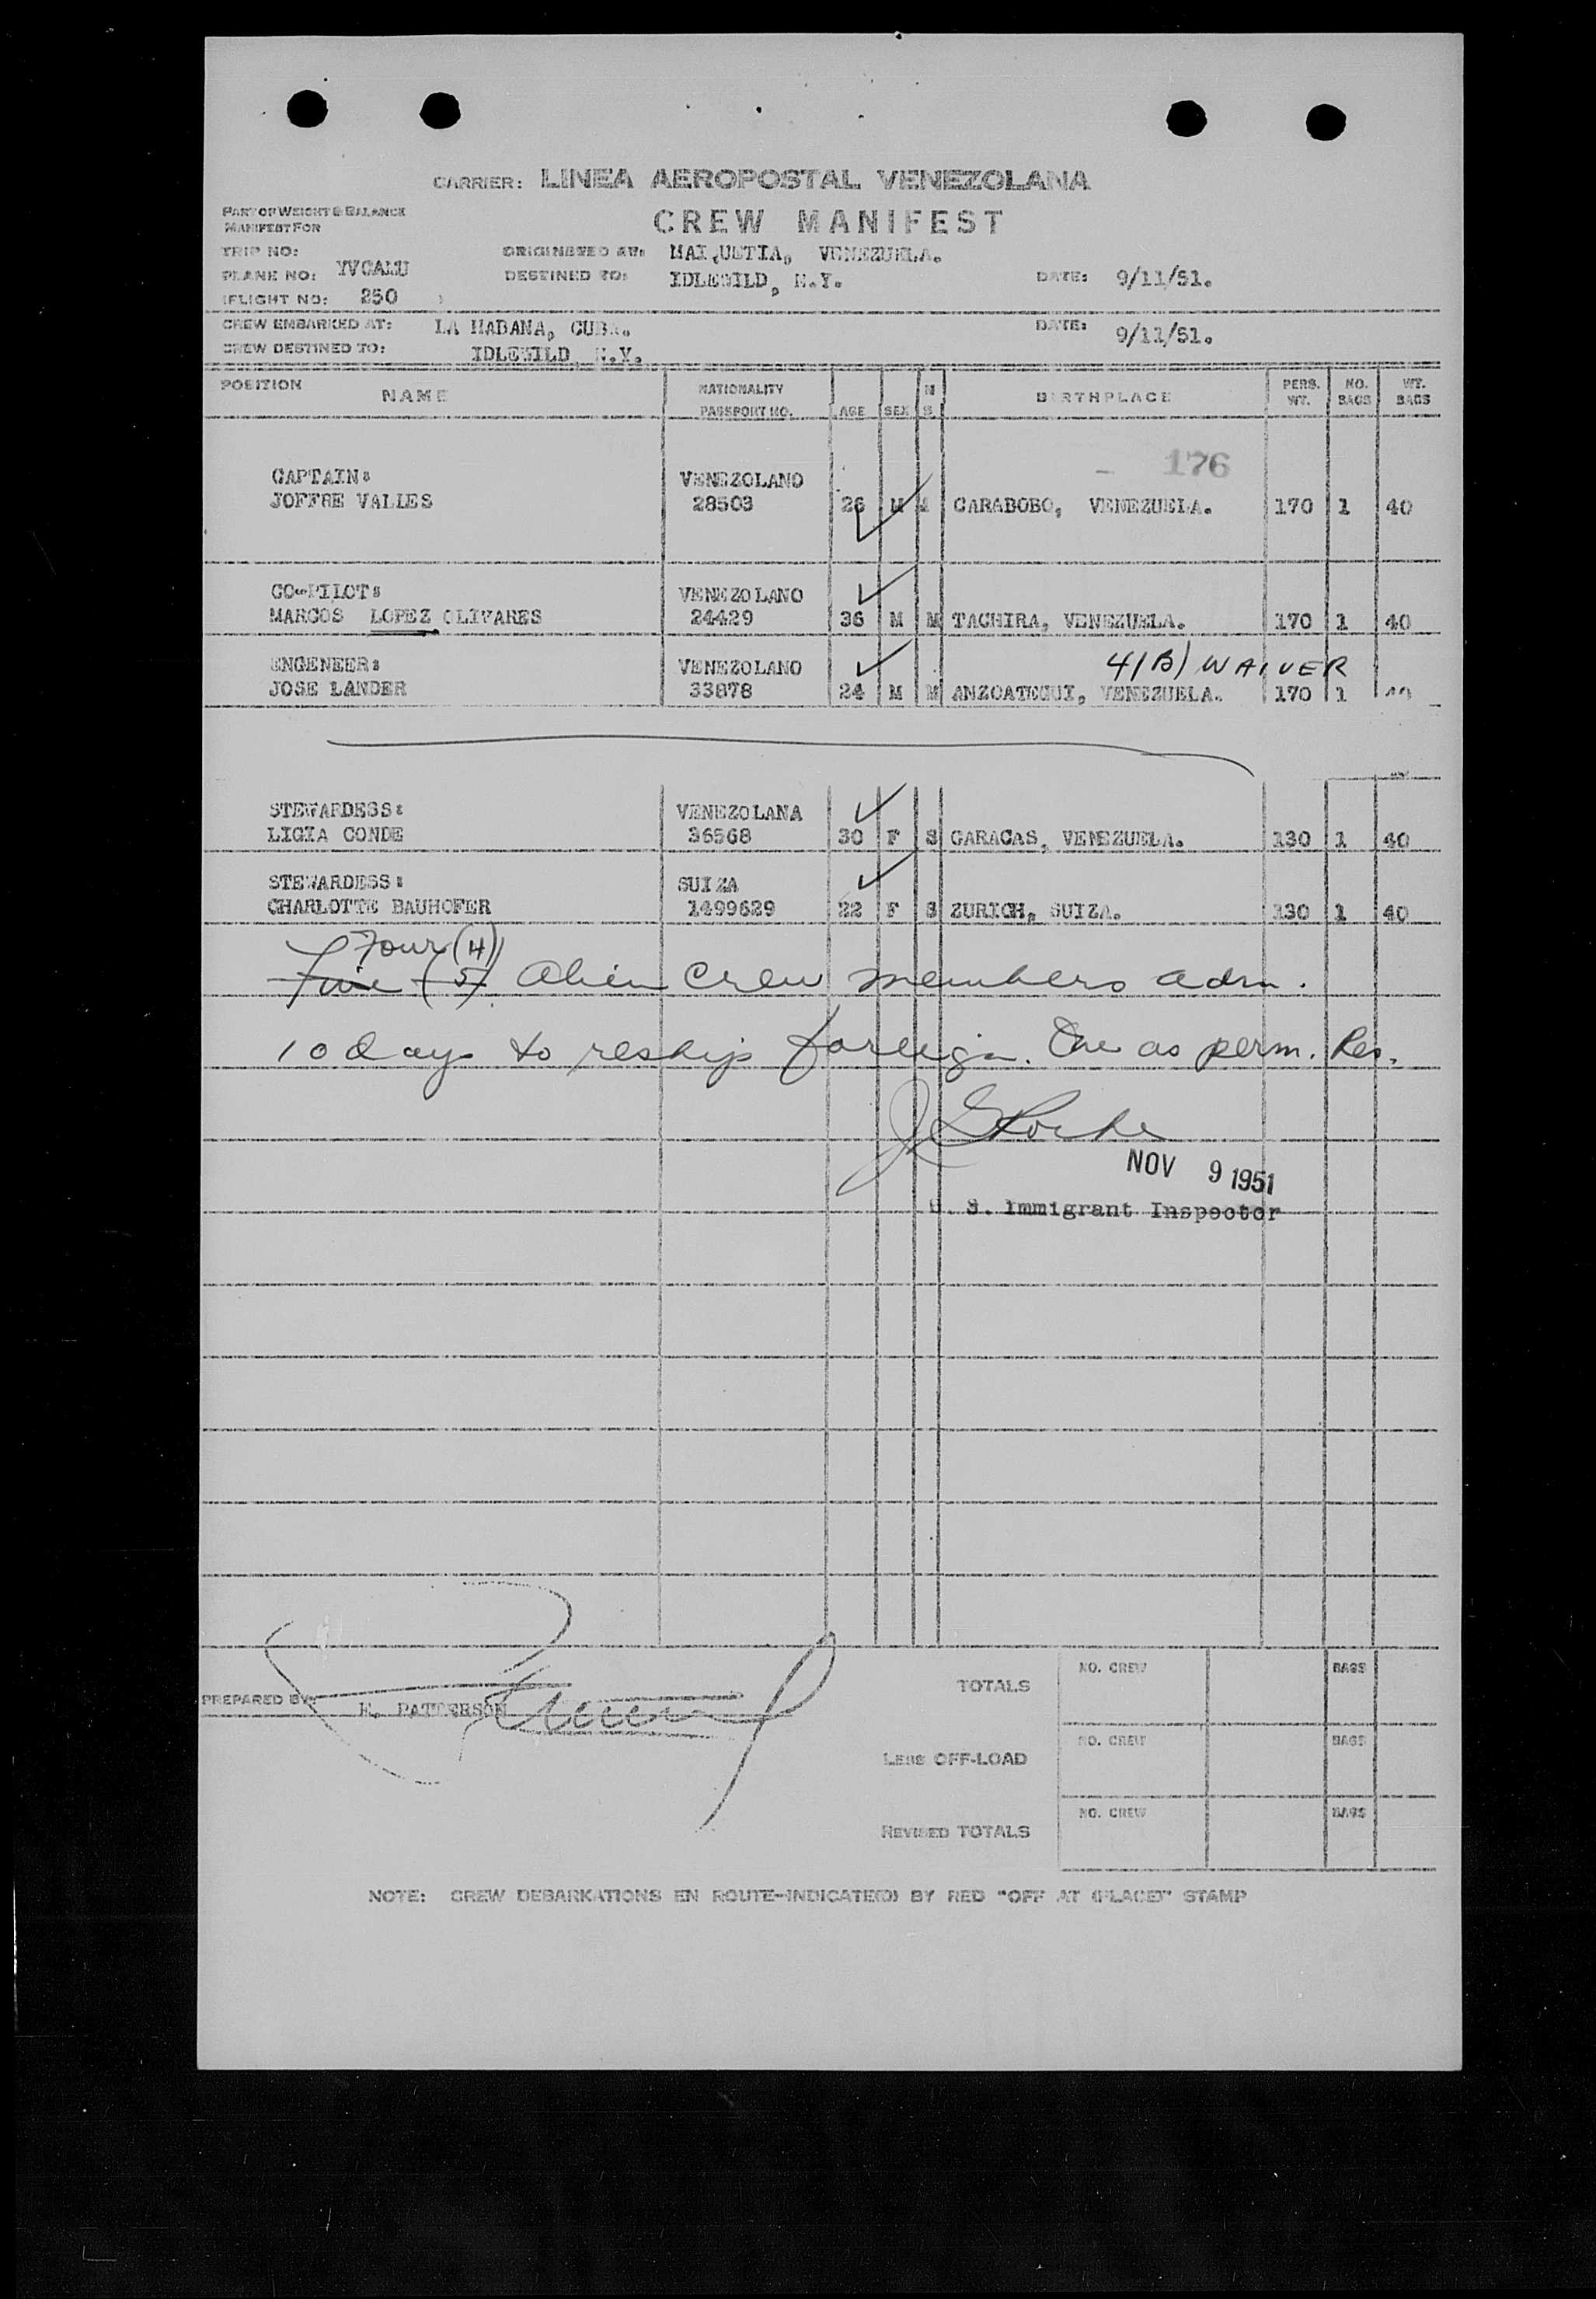 CARRIER: LINEA AEROPOSTAL VENEZOLANA
PART OF WEIGHT & BALANCE
MANIFEST FOR
CREW MANIFEST
TRIP NO:
ORIGINATED AT: MAI,UETIA, VENEZUELA.
PLANE NO: YVCAMU
DESTINED TO: IDLEWILD, N.Y.
DATE: 9/11/51.
FLIGHT NO: 250
CREW EMBARKED AT: LA HABANA, CUBA.
DATE: 9/11/51.
CREW DESTINED TO: IDLEWILD, N.Y.
POSITION NAME NATIONALITY PASSPORT NO. AGE SEX M S BIRTHPLACE PERS. WT. NO. BAGS WT. BAGS
- 176
CAPTAIN: VENEZOLANO
JOFFRE VALLES 28503 26 M M CARABOBO, VENEZUELA. 170 1 40
CO-PILOT: VENEZOLANO
MARCOS LOPEZ OLIVARES 24429 36 M M TACHIRA, VENEZUELA. 170 1 40
ENGENEER: VENEZOLANO 4(B) WAIVER
JOSE LANDER 33878 24 M M ANZOATEGUI, VENEZUELA. 170 1 40
STEWARDESS: VENEZOLANA
LIGIA CONDE 36568 30 F S CARACAS, VENEZUELA. 130 1 40
STEWARDESS: SUIZA
CHARLOTTE BAUHOFER 1499629 22 F S ZURICH, SUIZA. 130 1 40
Four (4)
Five (5) Alien Crew members adm.
10 days to reship foreign. One as perm. Res.
NOV 9 1951
U. S. Immigrant Inspector
PREPARED BY: E. PATTERSON
TOTALS NO. CREW BAGS
LESS OFF-LOAD NO. CREW BAGS
REVISED TOTALS NO. CREW BAGS
NOTE: CREW DEBARKATIONS EN ROUTE-INDICATE(D) BY RED "OFF AT (PLACE)" STAMP